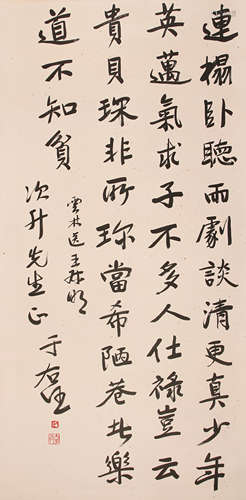 連榻臥聽雨劇談清更真少年
英邁氣求子不多人仕祿豈云
貴貝琛非所珍當希陋巷樂
道不知貧
雲林送王叔明
次升先生正
于右任